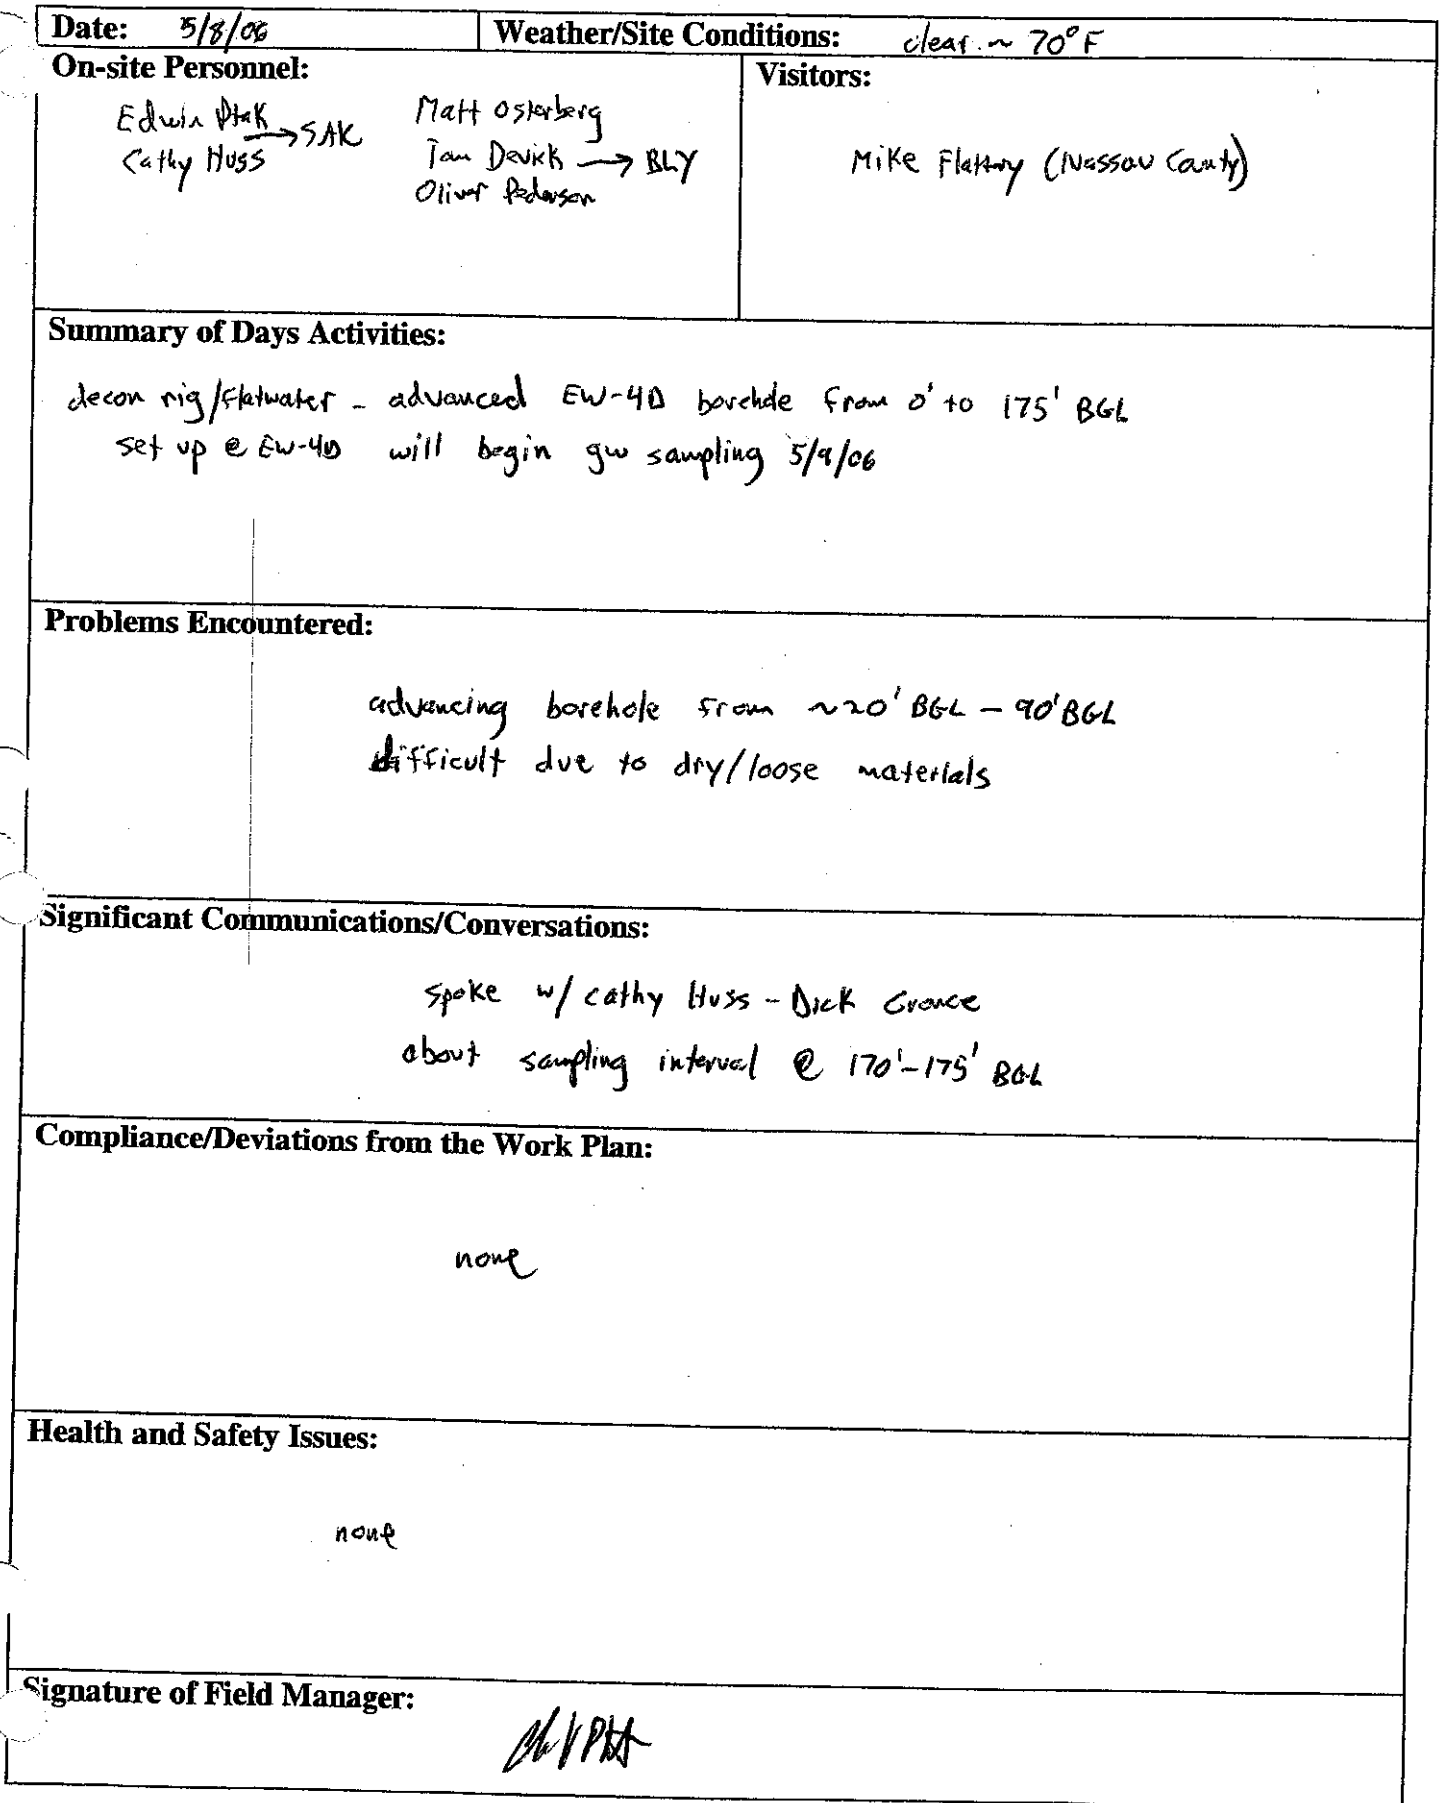 Date: 5/8/06 Weather/Site Conditions: clear. ~ 70°F
On-site Personnel:
Edwin Ptak
Cathy Huss → SAK
Matt Osterberg
Devick → BLY
Oliver Pederson
Visitors:
Mike Flattery (Nassau County)
Summary of Days Activities:
decon rig/flatwater - advanced EW-4D borehole from 0' to 175' BGL
set up @ EW-4D will begin gw sampling 5/9/06
Problems Encountered:
advancing borehole from ~20' BGL - 90' BGL
difficult due to dry/loose materials
Significant Communications/Conversations:
spoke w/ cathy Huss - Dick
about sampling interval @ 170'-175' BGL
Compliance/Deviations from the Work Plan:
none
Health and Safety Issues:
none
Signature of Field Manager: